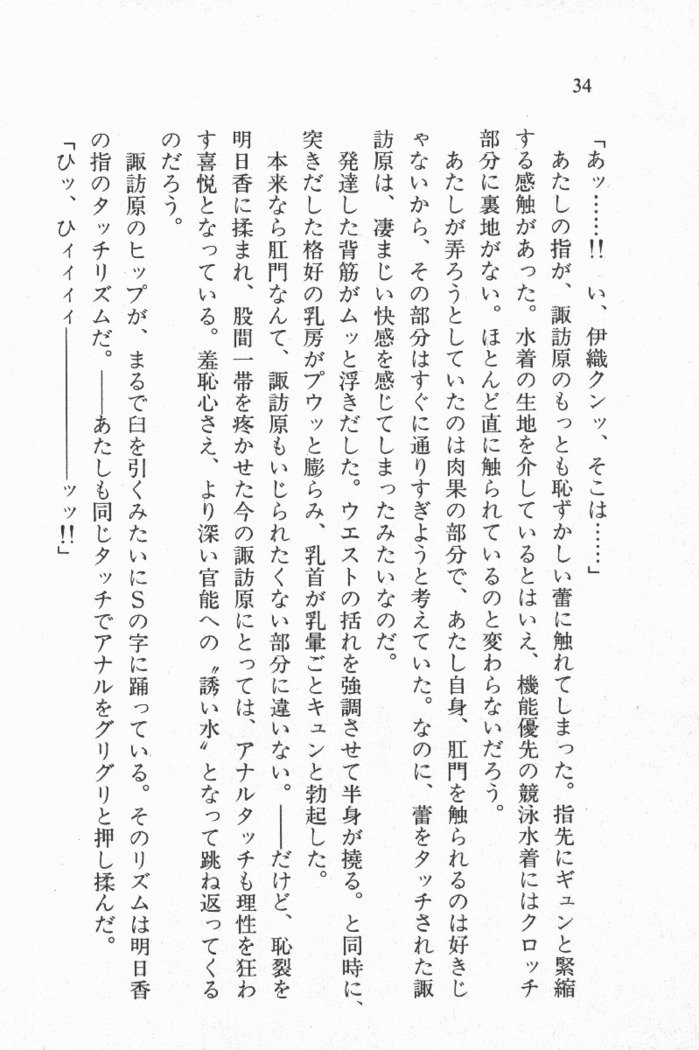 34
「あッ……!! い、伊織クンッ、そこは……」
あたしの指が、諏訪原のもっとも恥ずかしい蕾に触れてしまった。指先にギュンと緊縮
する感触があった。水着の生地を介しているとはいえ、機能優先の競泳水着にはクロッチ
部分に裏地がない。ほとんど直に触られているのと変わらないだろう。
あたしが弄ろうとしていたのは肉果の部分で、あたし自身、肛門を触られるのは好きじ
ゃないから、その部分はすぐに通りすぎようと考えていた。なのに、蕾をタッチされた諏
訪原は、凄まじい快感を感じてしまったみたいなのだ。
発達した背筋がムッと浮きだした。ウエストの括れを強調させて半身が撓る。と同時に、
突きだした格好の乳房がプウッと膨らみ、乳首が乳暈ごとキュンと勃起した。
本来なら肛門なんて、諏訪原もいじられたくない部分に違いない。――だけど、恥裂を
明日香に揉まれ、股間一帯を疼かせた今の諏訪原にとっては、アナルタッチも理性を狂わ
す喜悦となっている。羞恥心さえ、より深い官能への〝誘い水〟となって跳ね返ってくる
のだろう。
諏訪原のヒップが、まるで臼を引くみたいにSの字に踊っている。そのリズムは明日香
の指のタッチリズムだ。――あたしも同じタッチでアナルをグリグリと押し揉んだ。
「ひッ、ひィィィィ――――――ッッ!!」